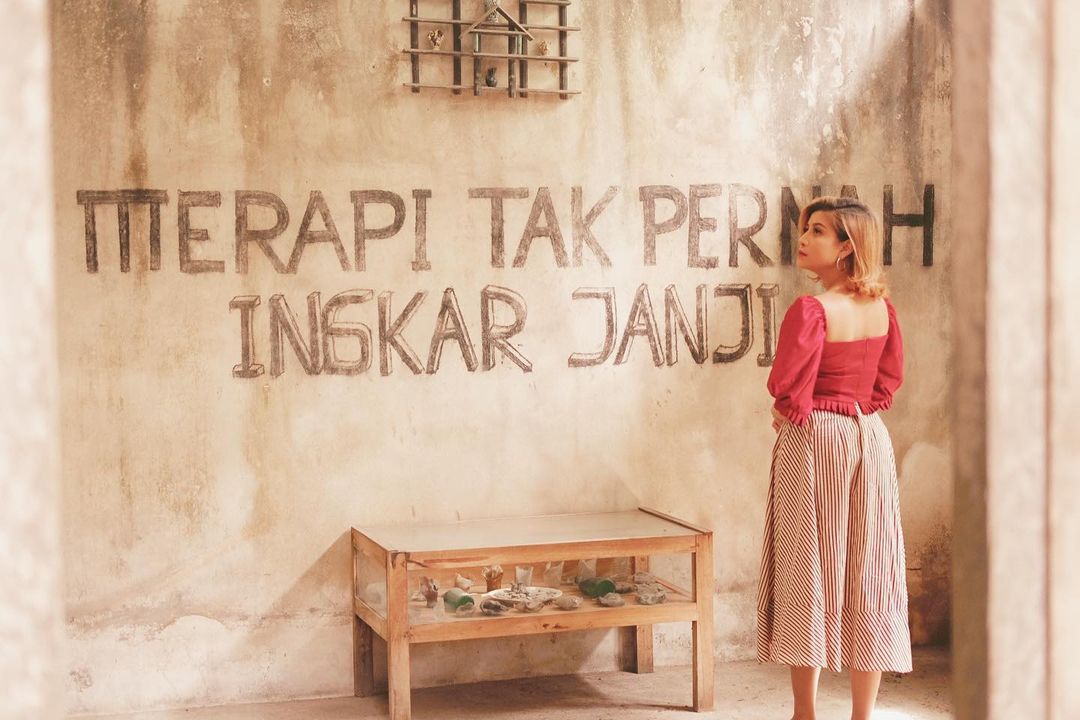 MERAPI TAK PERNAH
INGKAR JANJI